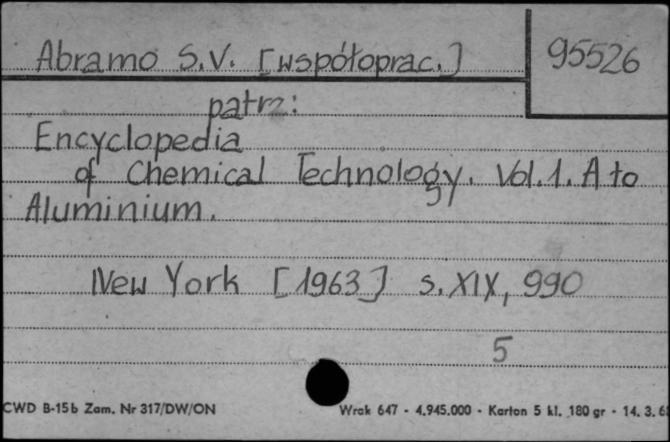 Abramo S.V. [współoprac.] 95526
patrz:
Encyclopedia
of Chemical Technology. Vol.1. A to
Aluminium.
New York [1963] s. XIX, 990
5
CWD B-15b Zam. Nr 317/DW/ON Wrak 647 - 4.945.000 - Karton 5 kl. 180 gr - 14. 3. 6